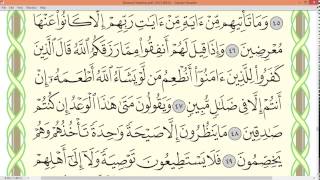 ٤٥ وَمَا تَأْتِيهِم مِّنْ ءَايَةٍ مِّنْ ءَايَٰتِ رَبِّهِمْ إِلَّا كَانُوا۟ عَنْهَا
مُعْرِضِينَ ٤٦ وَإِذَا قِيلَ لَهُمْ أَنفِقُوا۟ مِمَّا رَزَقَكُمُ ٱللَّهُ قَالَ ٱلَّذِينَ
كَفَرُوا۟ لِلَّذِينَ ءَامَنُوٓا۟ أَنُطْعِمُ مَن لَّوْ يَشَآءُ ٱللَّهُ أَطْعَمَهُۥٓ إِنْ
أَنتُمْ إِلَّا فِى ضَلَٰلٍ مُّبِينٍ ٤٧ وَيَقُولُونَ مَتَىٰ هَٰذَا ٱلْوَعْدُ إِن كُنتُمْ
صَٰدِقِينَ ٤٨ مَا يَنظُرُونَ إِلَّا صَيْحَةً وَٰحِدَةً تَأْخُذُهُمْ وَهُمْ
يَخِصِّمُونَ ٤٩ فَلَا يَسْتَطِيعُونَ تَوْصِيَةً وَلَآ إِلَىٰٓ أَهْلِهِمْ